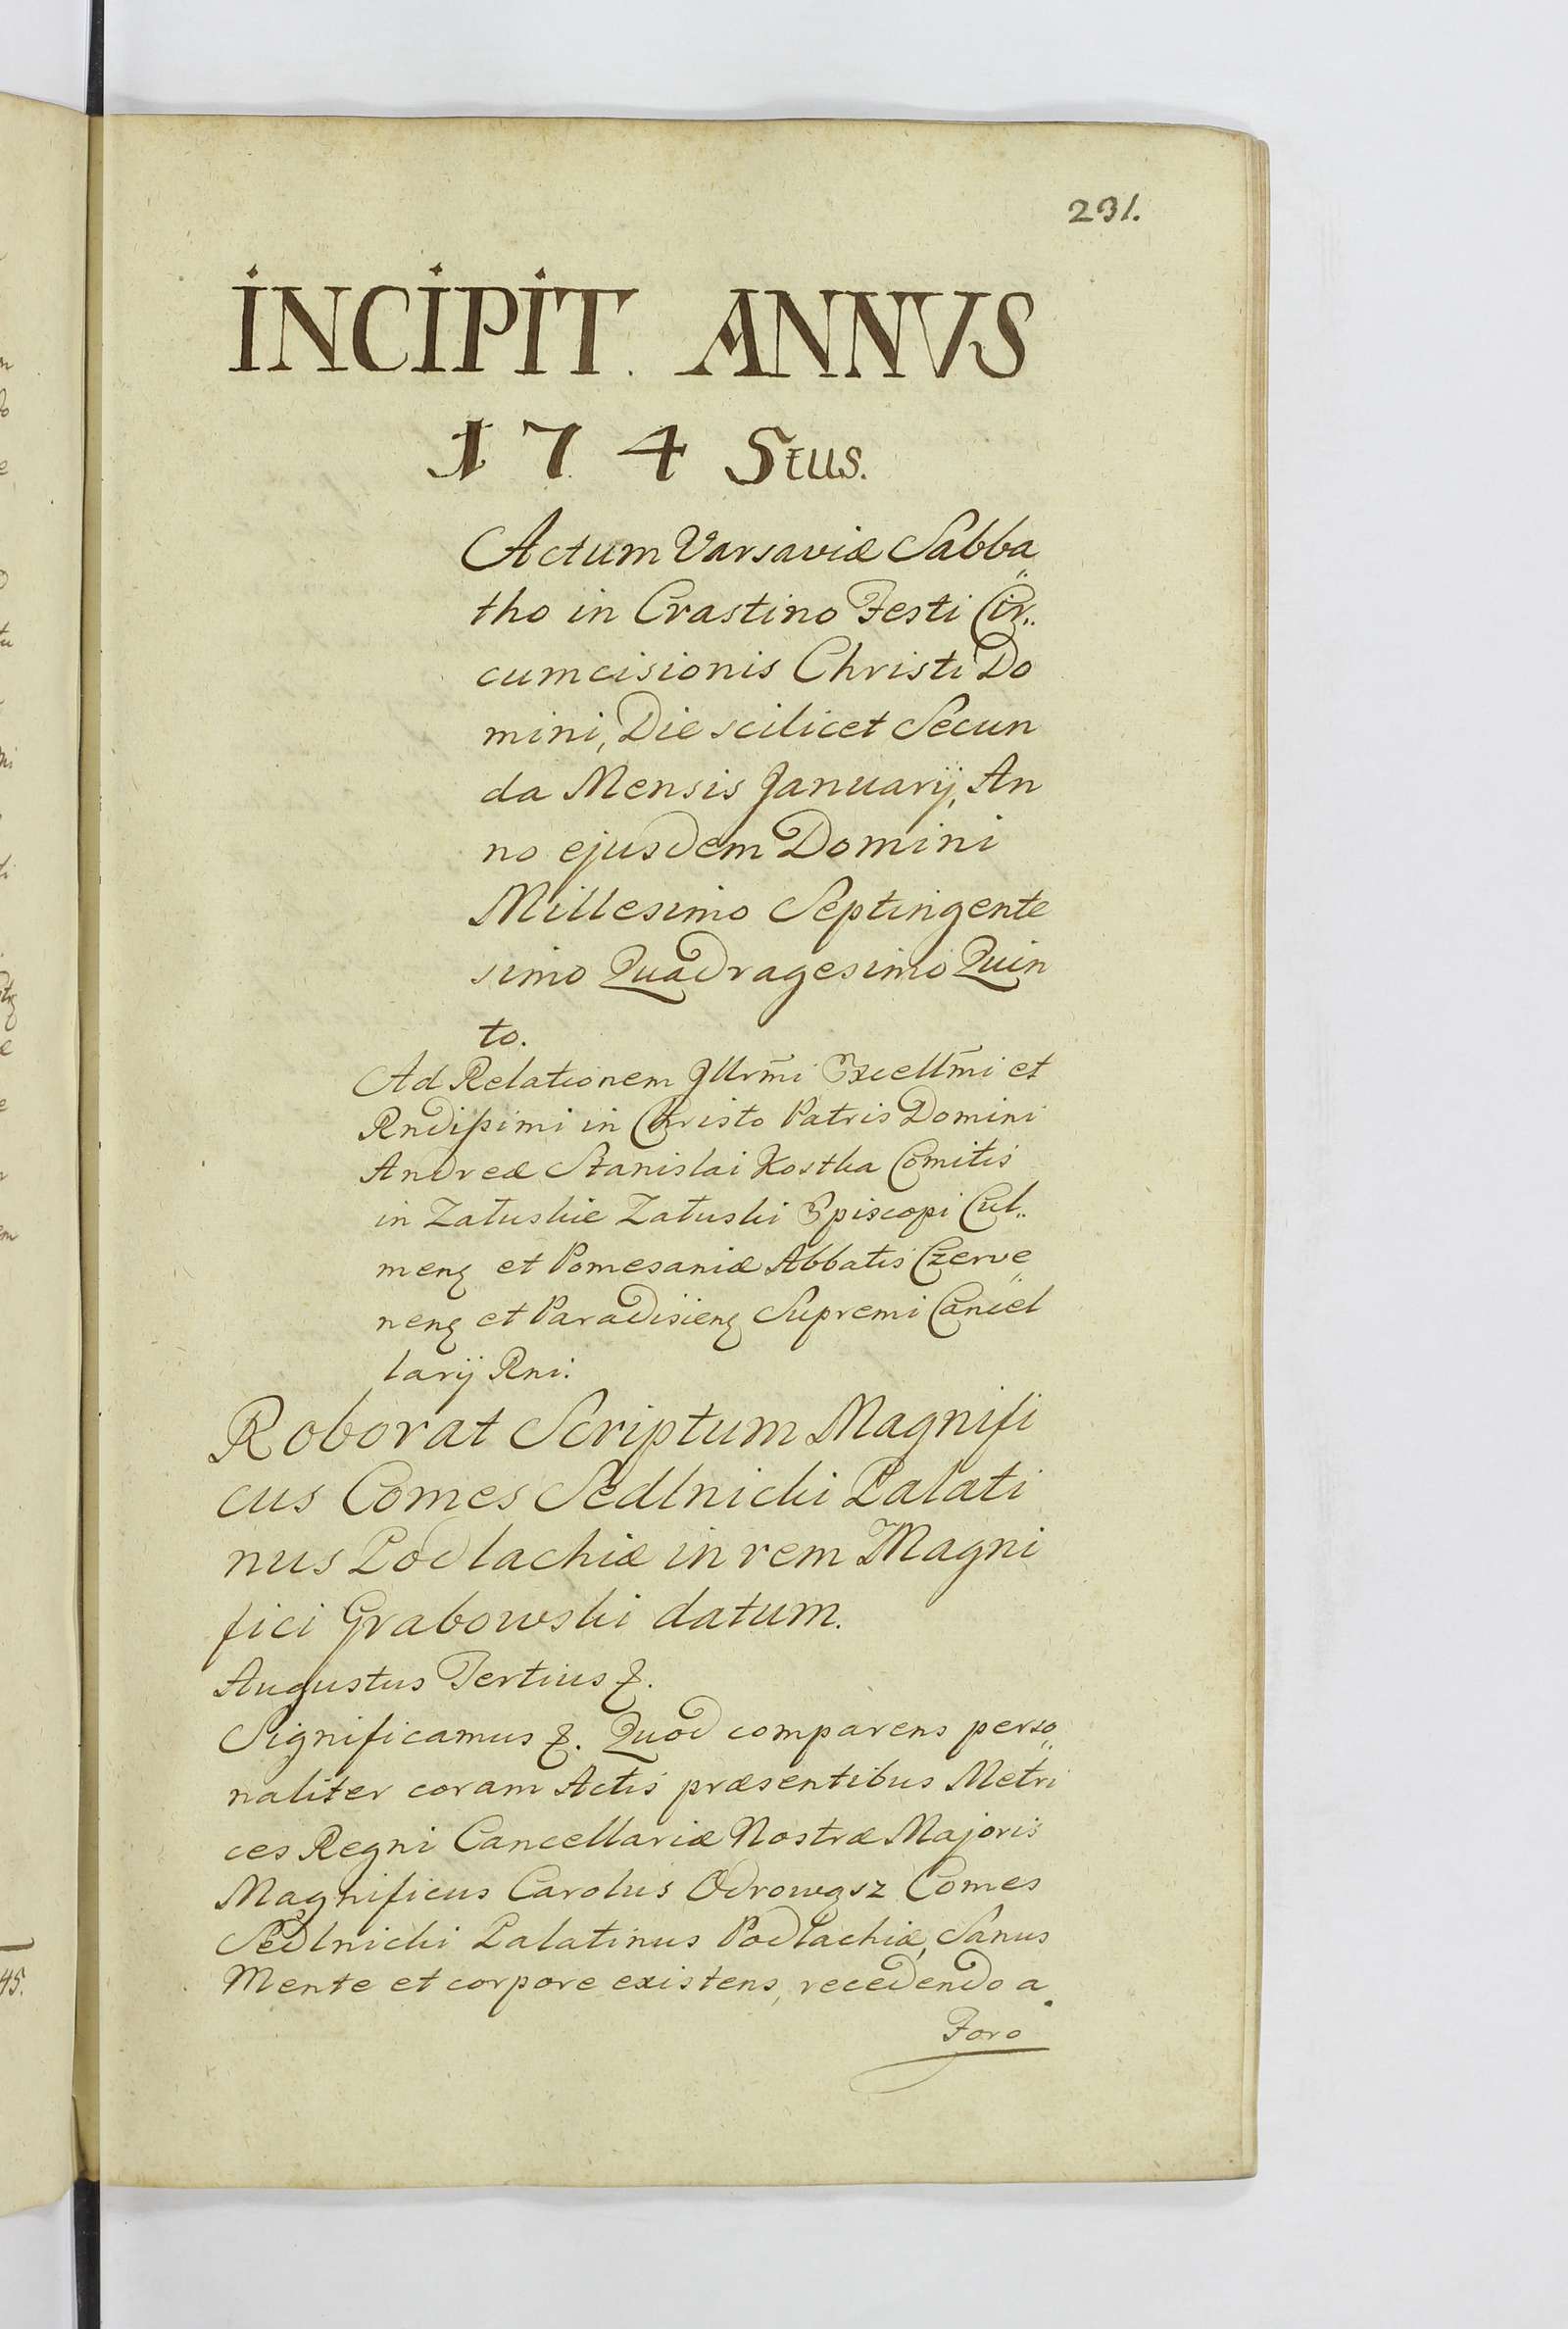 291.
INCIPIT ANNVS
174 5tus.
Actum Varsaviæ Sabba„
tho in Crastino Festi Cir„
cumcisionis Christi Do
mini, Die scilicet Secun
da Mensis Januarij, An
no ejusdem Domini
Millesimo Septingente
simo Quadragesimo Quin
to.
Ad Relationem Jllrm̄i Excellm̄i et
Rndißimi in Christo Patris Domini
Andreæ Stanislai Kostka Comitis
in Załuskie Załuski Episcopi Cul„
menę et Pomesaniæ Abbatis Czerve„
nenę et Paradisienę Supremi Cancel
larij Rni:
Roborat Scriptum Magnifi
cus Comes Sedlnicki Palati
nus Podlachiæ in rem Magni
fici Grabowski datum.
Augustus Tertius &.
Significamus &. Quod comparens perso„
naliter coram Actis præsentibus Metri
ces Regni Cancellariæ Nostræ Majoris
Magnificus Carolus Odrowąsz Comes
Sedlnicki Palatinus Podlachiæ, Sanus
Mente et corpore existens, recedendo a
Foro
45.